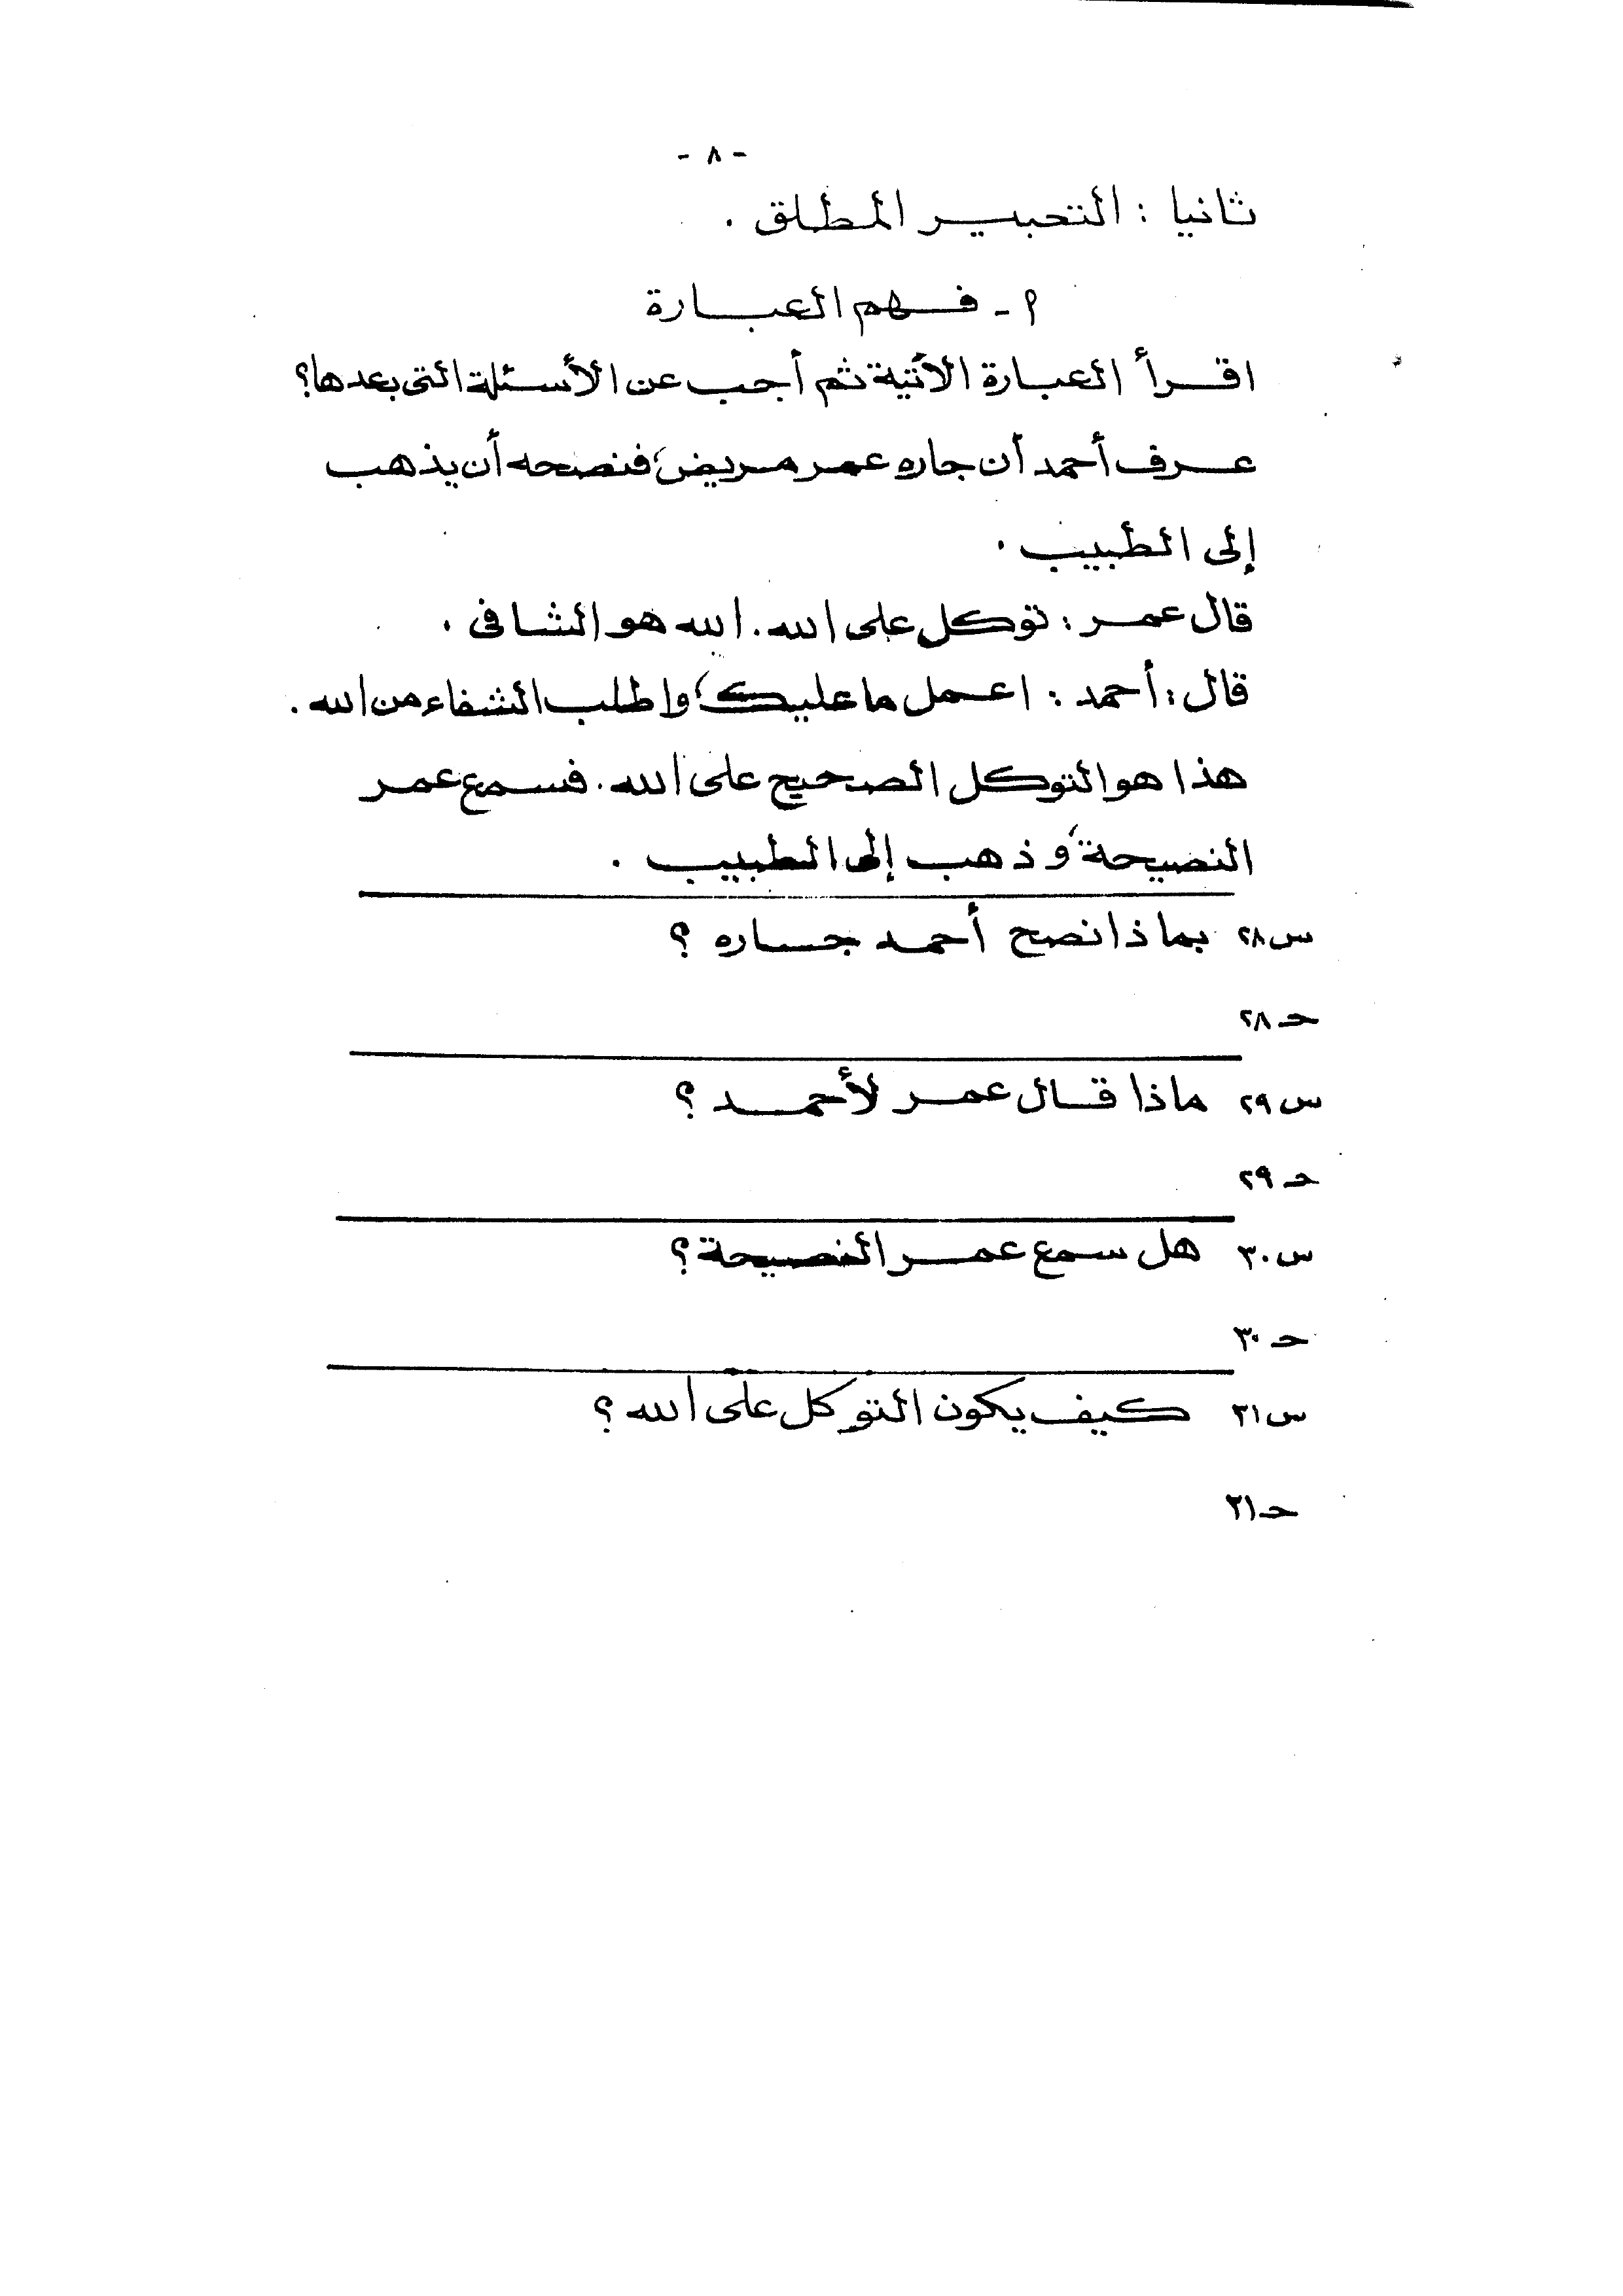 - ٨ -
ثانيا : التعبير المطلق .
٩ - فهم العبارة
اقرأ العبارة الآتية ثم أجب عن الأسئلة التى بعدها؟
عرف أحمد أن جاره عمر مريض، فنصحه أن يذهب
إلى الطبيب .
قال عمر : توكل على الله . الله هو الشافى .
قال : أحمد : اعمل ما عليك، واطلب الشفاء من الله .
هذا هو التوكل الصحيح على الله . فسمع عمر
النصيحة، وذهب إلى الطبيب .
س٢٨ بماذا نصح أحمد جاره ؟
حـ ٢٨
س٢٩ ماذا قال عمر لأحمد ؟
حـ ٢٩
س٣٠ هل سمع عمر النصيحة؟
حـ ٣٠
س٣١ كيف يكون التوكل على الله ؟
حـ ٣١